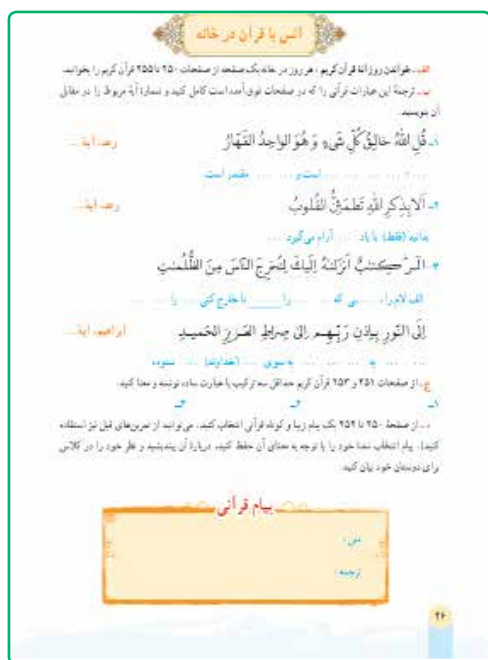 انس با قرآن در خانه
الف ـ خواندن روزانهٔ قرآن کریم : هر روز در خانه یک صفحه از صفحات ۲۵۰ تا ۲۵۵ قرآن کریم را بخوانید.
ب ـ ترجمهٔ این عبارات قرآنی را که در صفحات فوق آمده است کامل کنید و شمارهٔ آیهٔ مربوط را در مقابل
آن بنویسید.
۱ـ قُلِ اللّٰهُ خالِقُ كُلِّ شَیءٍ وَ هُوَ الواحِدُ القَهّارُ رعد، آیهٔ ....
است و مقتدر است
۲ـ اَلا بِذِکرِ اللّٰهِ تَطمَئِنُّ القُلوبُ رعد، آیهٔ ....
بدانید (فقط) با یاد .... آرام می‌گیرد ....
۳ـ الٓر كِتٰبٌ اَنزَلنٰهُ اِلَیكَ لِتُخرِجَ النّاسَ مِنَ الظُّلُمٰتِ
الف لام را، که را تا خارج کنی .... را
اِلَی النّورِ بِاِذنِ رَبِّهِم اِلیٰ صِراطِ العَزیزِ الحَمیدِ ابراهیم، آیهٔ ....
به به سوی (خداوند) ستوده
ج ـ از صفحات ۲۵۱ و ۲۵۳ قرآن کریم حداقل سه ترکیب یا عبارت ساده نوشته و معنا کنید.
۱ـ ۲ـ ۳ـ
د ـ از صفحهٔ ۲۵۰ تا ۲۵۴ یک پیام زیبا و کوتاه قرآنی انتخاب کنید. می‌توانید از تمرین‌های قبل نیز استفاده
کنید). پیام انتخاب شدهٔ خود را با توجه به معنای آن حفظ کنید. دربارهٔ آن بیندیشید و نظر خود را در کلاس
برای دوستان خود بیان کنید.
پیام قرآنی
متن :
ترجمه :
۲۶